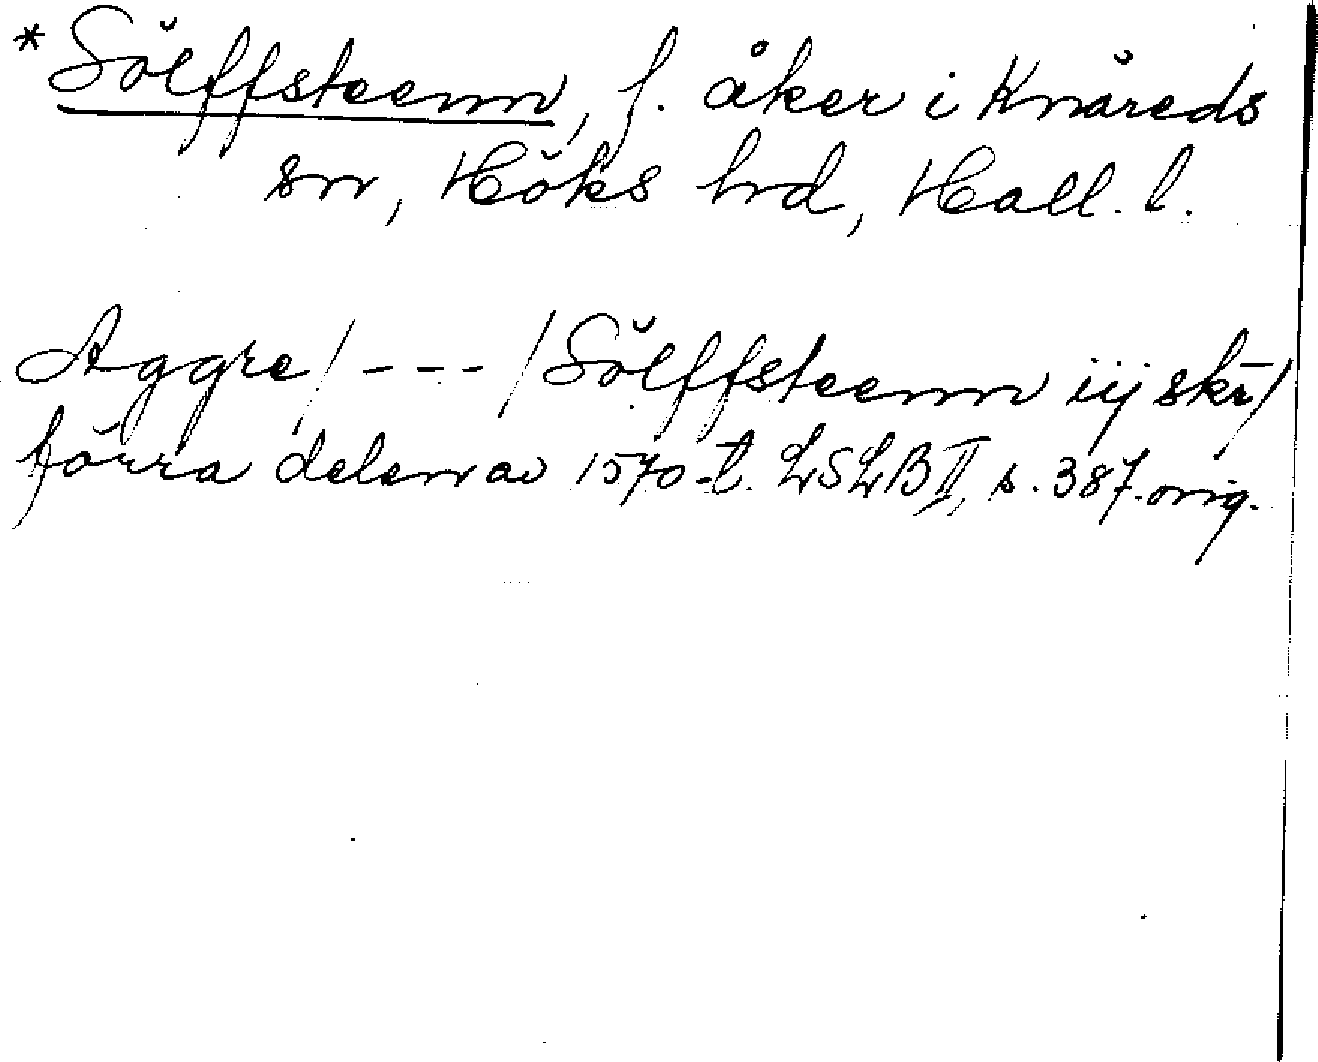 *Sölffsteenn, f. åker i Knäreds
sn, Höks hd, Hall. l.
Aggre/---/Sölffsteenn iij skr̄/
förra delen av 1570-t. LSLB II, s. 387. orig.